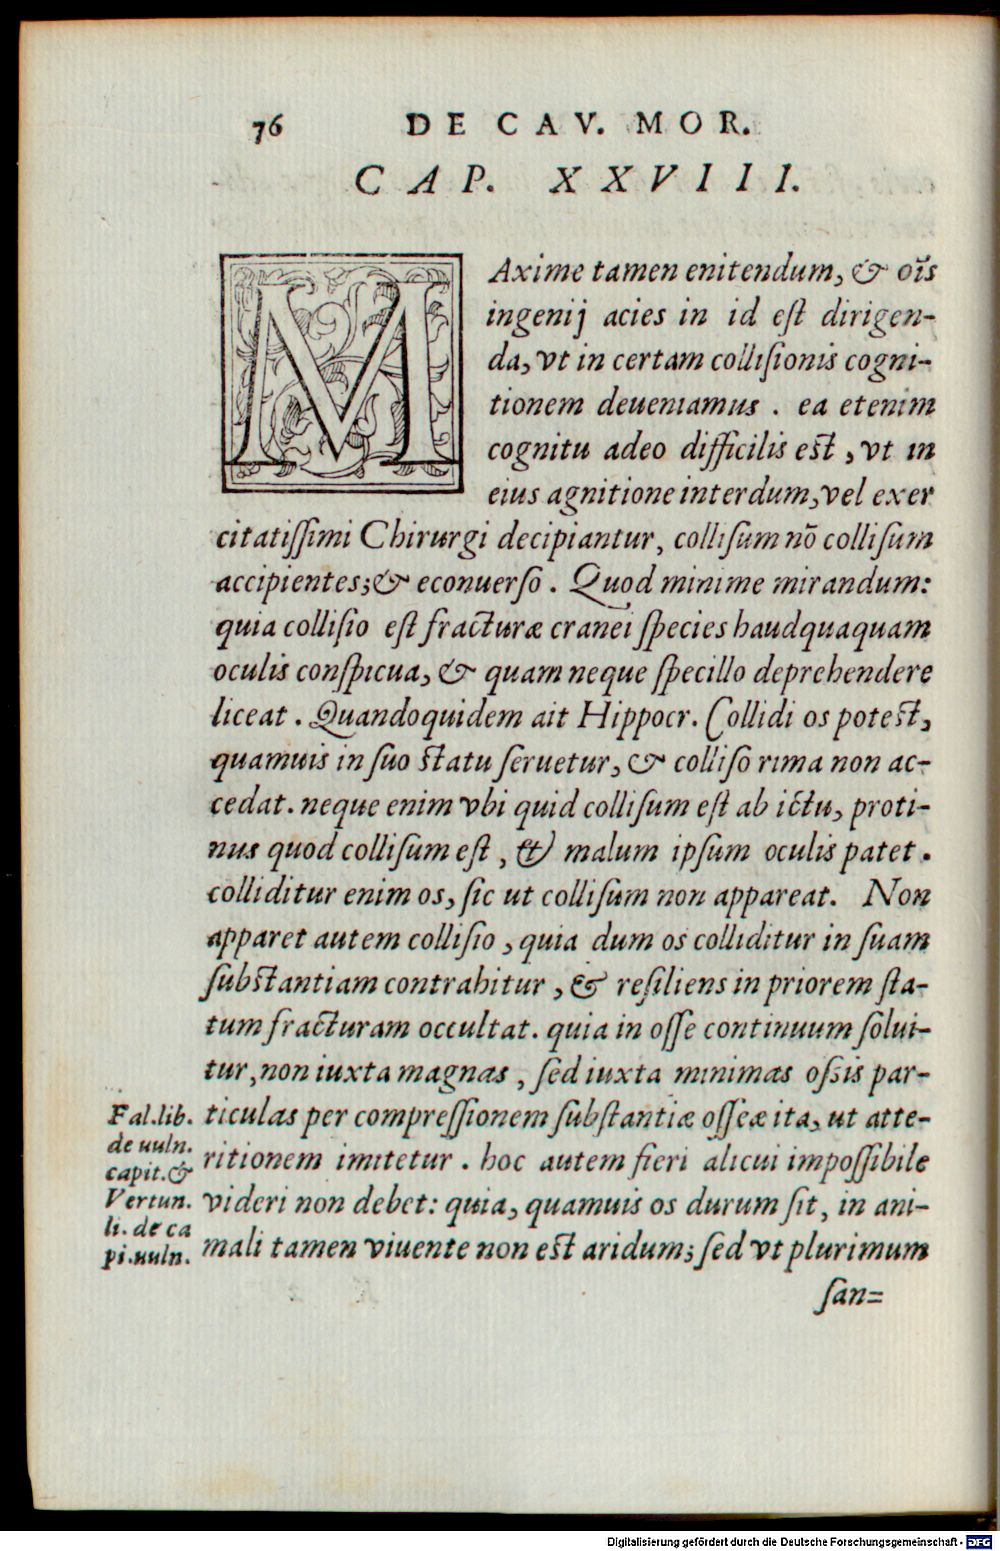 76 DE CAV. MOR.
CAP. XXVIII.
MAxime tamen enitendum, & oĩs
ingenij acies in id eſt dirigen-
da, vt in certam colliſionis cogni-
tionem deueniamus . ea etenim
cognitu adeo difficilis eſt , vt in
eius agnitione interdum, vel exer
citatiſſimi Chirurgi decipiantur, colliſum nõ colliſum
accipientes; & econuerſo . Quod minime mirandum:
quia colliſio eſt fracturæ cranei ſpecies haudquaquam
oculis conſpicua, & quam neque ſpecillo deprehendere
liceat . Quandoquidem ait Hippocr. Collidi os poteſt,
quamuis in ſuo ſtatu ſeruetur, & colliſo rima non ac-
cedat. neque enim vbi quid colliſum eſt ab ictu, proti-
nus quod colliſum eſt , & malum ipſum oculis patet .
colliditur enim os, ſic ut colliſum non appareat. Non
apparet autem colliſio , quia dum os colliditur in ſuam
ſubſtantiam contrahitur , & reſiliens in priorem ſta-
tum fracturam occultat. quia in oſſe continuum ſolui-
tur, non iuxta magnas , ſed iuxta minimas oſsis par-
ticulas per compreſſionem ſubſtantiæ oſſeæ ita, ut atte-
ritionem imitetur . hoc autem fieri alicui impoſſibile
videri non debet: quia, quamuis os durum ſit, in ani-
mali tamen viuente non eſt aridum; ſed vt plurimum
ſan=
Fal. lib.
de uuln.
capit. &
Vertun.
li. de ca
pi. uuln.
Digitalisierung gefördert durch die Deutsche Forschungsgemeinschaft - DFG